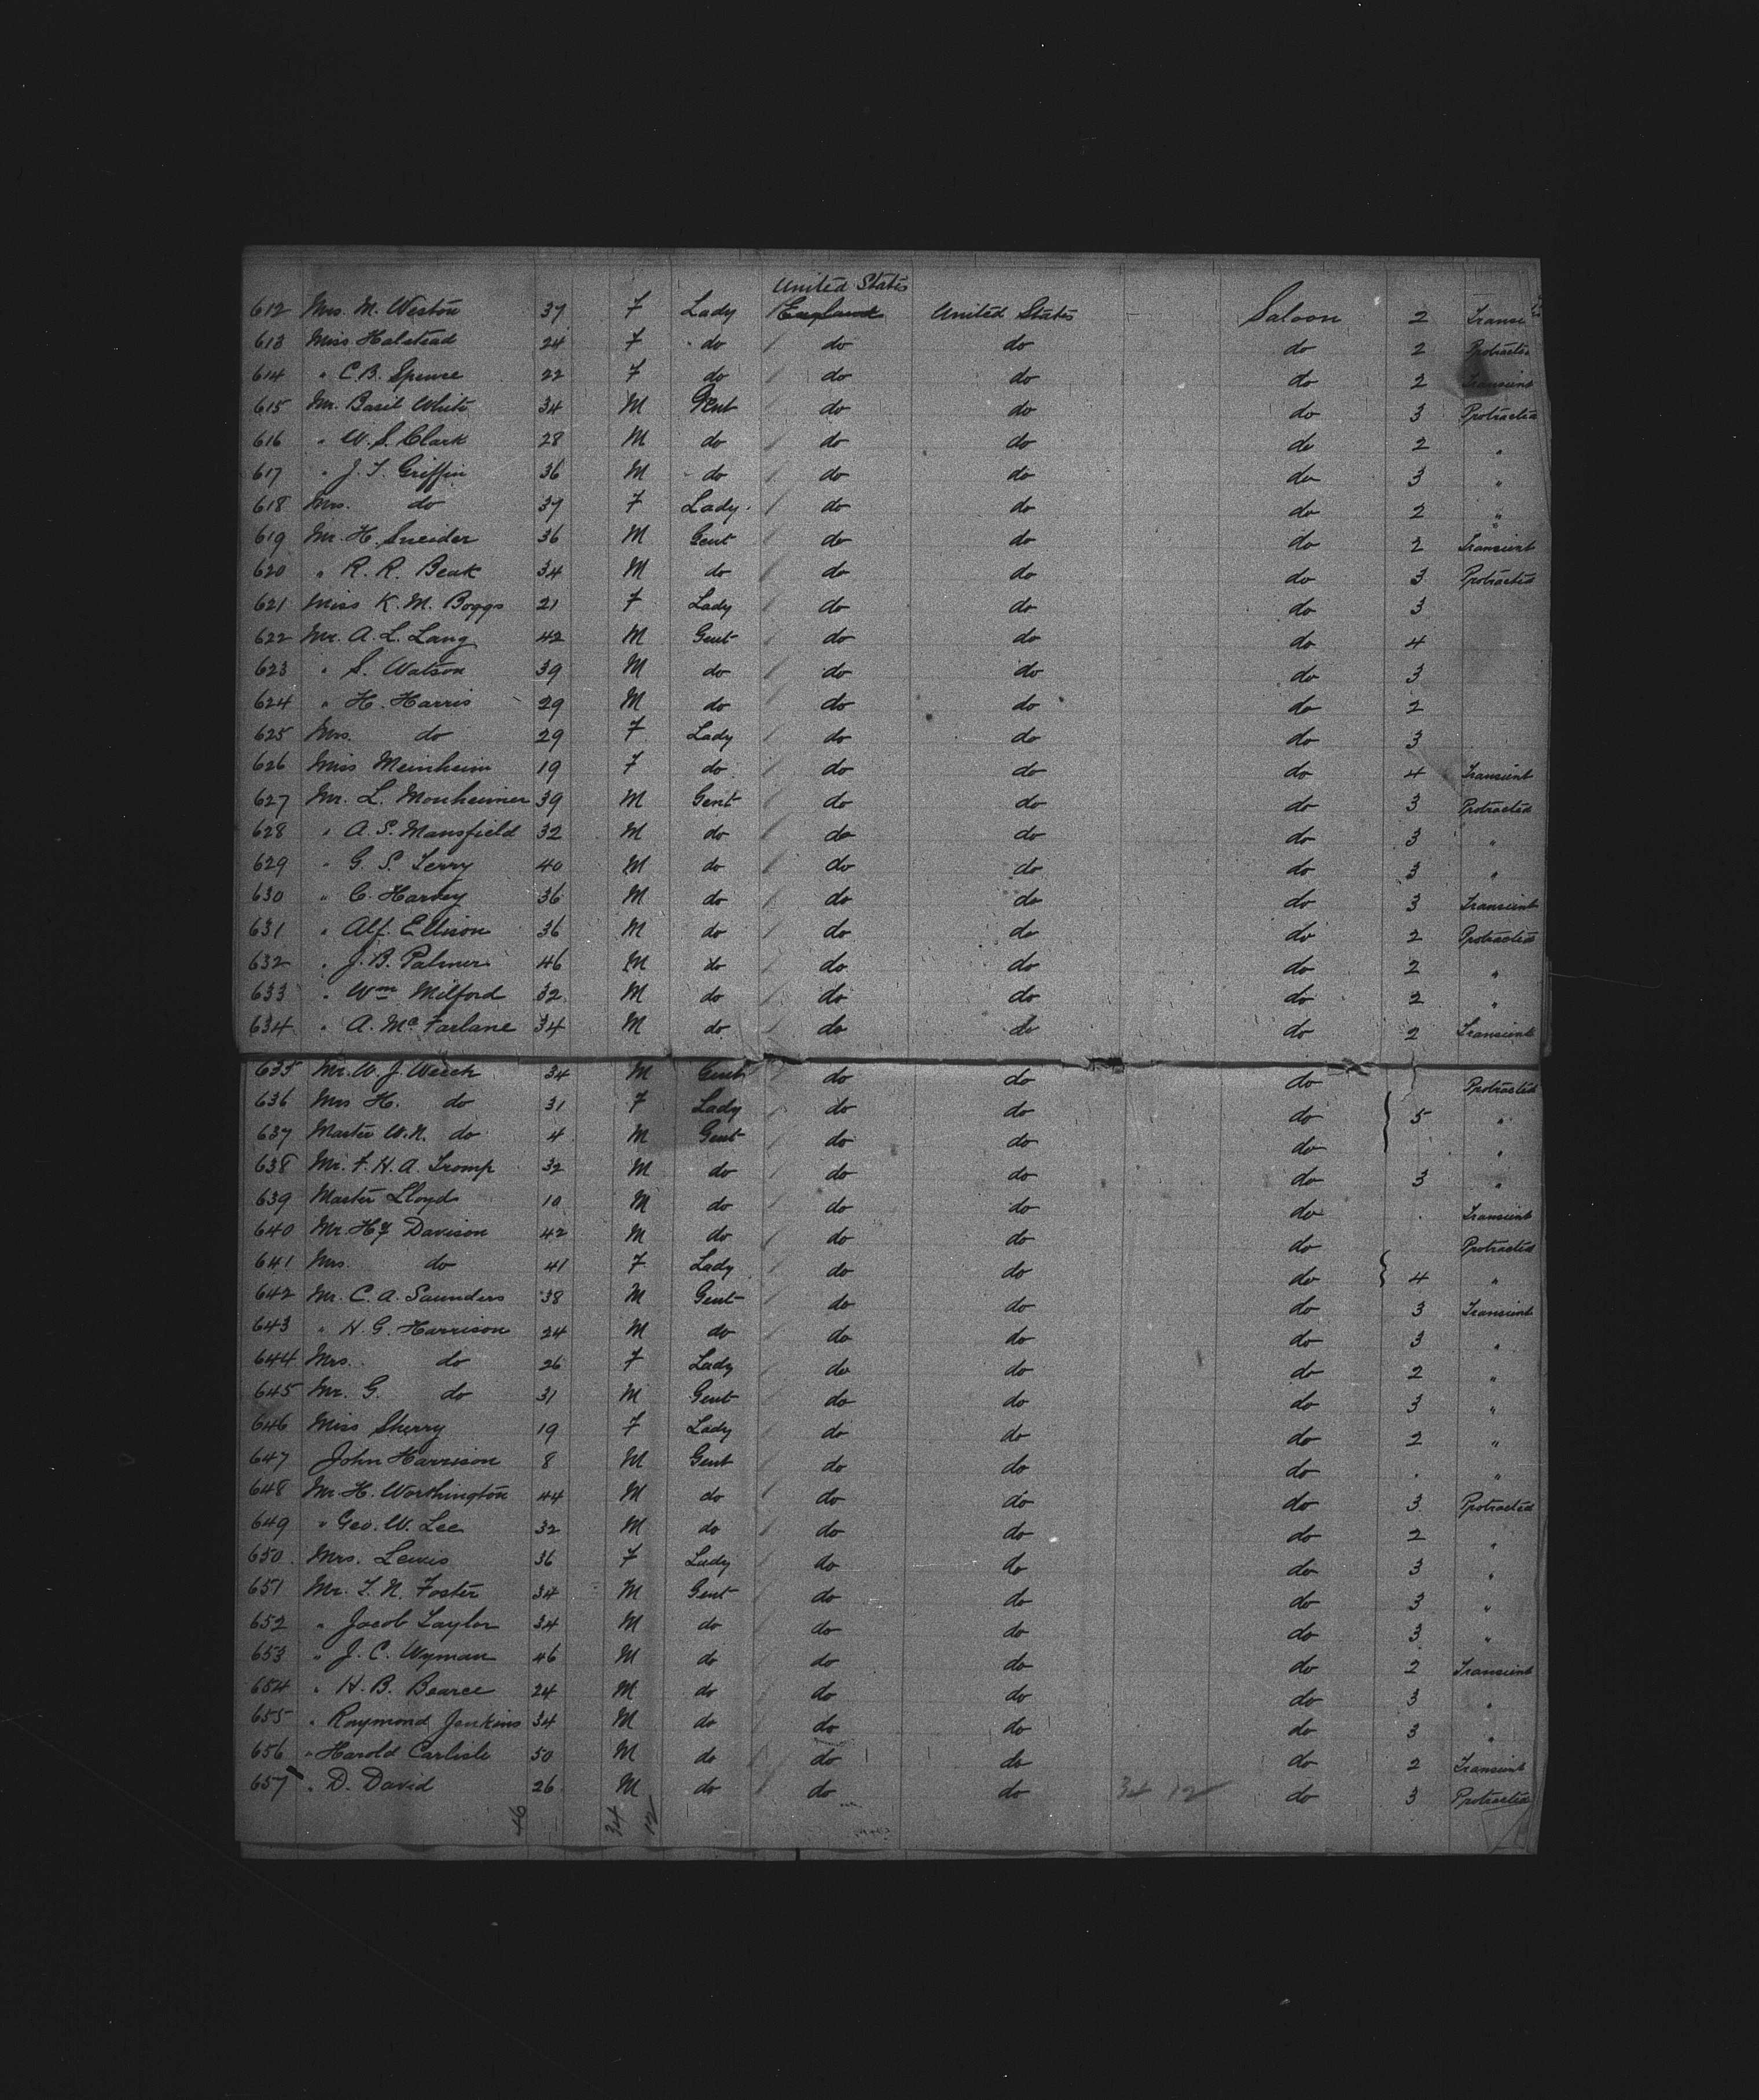 United States
612 Mrs. M. Weston 37 F Lady England United States Saloon 2 Transi
613 Miss Halstead 24 F do do do do 2 Protracted
614 " C.B. Spense 22 F do do do do 2 Transient
615 Mr. Basil White 34 M Gent do do do 3 Protracted
616 " W.S. Clark 28 M do do do do 2 "
617 " J.T. Griffin 36 M do do do do 3 "
618 Mrs. do 37 F Lady do do do 2 "
619 Mr. H. Sneider 36 M Gent do do do 2 Transient
620 " R.R. Beak 34 M do do do do 3 Protracted
621 Miss K.M. Boggs 21 F Lady do do do 3
622 Mr. A.L. Lang 42 M Gent do do do 4
623 " S. Watson 39 M do do do do 3
624 " H. Harris 29 M do do do do 2
625 Mrs. do 29 F Lady do do do 3
626 Miss Meinheim 19 F do do do do 4 Transient
627 Mr. L. Monheimer 39 M Gent do do do 3 Protracted
628 " A.S. Mansfield 32 M do do do do 3 "
629 " G.S. Terry 40 M do do do do 3 "
630 " C. Harvey 36 M do do do do 3 Transient
631 " Alf. Ellison 36 M do do do do 2 Protracted
632 " J.B. Palmer 46 M do do do do 2 "
633 " Wm Milford 32 M do do do do 2 "
634 " A. Mc Farlane 34 M do do do do 2 Transient
635 Mr. W.J. Weech 34 M Gent do do do Protracted
636 Mrs H. do 31 F Lady do do do 5 "
637 Master W.N. do 4 M Gent do do do "
638 Mr. F.H.A. Tromp 32 M do do do do 3 "
639 Master Lloyd 10 M do do do do Transient
640 Mr. Hy Davison 42 M do do do do Protracted
641 Mrs. do 41 F Lady do do do 4 "
642 Mr. C.A. Saunders 38 M Gent do do do 3 Transient
643 " H.G. Harrison 24 M do do do do 3 "
644 Mrs. do 26 F Lady do do do 2 "
645 Mr. G. do 31 M Gent do do do 3 "
646 Miss Sherry 19 F Lady do do do 2 "
647 John Harrison 8 M Gent do do do . "
648 Mr. H. Worthington 44 M do do do do 3 Protracted
649 " Geo. W. Lee 32 M do do do do 2 "
650 Mrs. Lewis 36 F Lady do do do 3 "
651 Mr. T.N. Foster 34 M Gent do do do 3 "
652 " Jacob Taylor 34 M do do do do 3 "
653 " J.C. Wyman 46 M do do do do 2 Transient
654 " H.B. Bearce 24 M do do do do 3 "
655 " Raymond Jenkins 34 M do do do do 3 "
656 " Harold Carlisle 50 M do do do do 2 Transient
657 " D. David 26 M do do do 34 12 do 3 Protracted
46 34 12